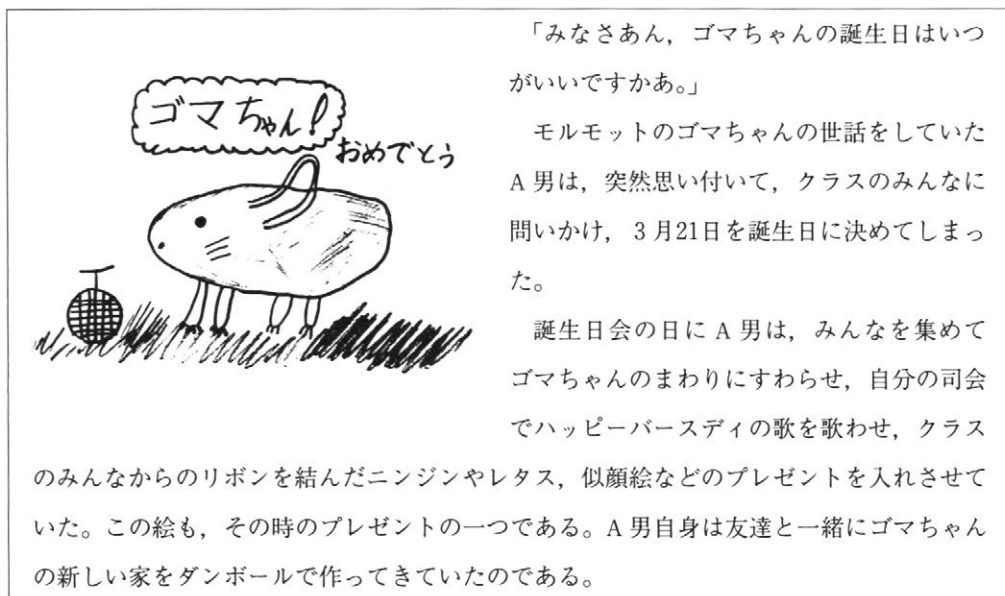 「みなさあん，ゴマちゃんの誕生日はいつ
がいいですかあ。」
ゴマちゃん！
おめでとう
モルモットのゴマちゃんの世話をしていた
A男は，突然思い付いて，クラスのみんなに
問いかけ，3月21日を誕生日に決めてしまっ
た。
誕生日会の日にA男は，みんなを集めて
ゴマちゃんのまわりにすわらせ，自分の司会
でハッピーバースディの歌を歌わせ，クラス
のみんなからのリボンを結んだニンジンやレタス，似顔絵などのプレゼントを入れさせて
いた。この絵も，その時のプレゼントの一つである。A男自身は友達と一緒にゴマちゃん
の新しい家をダンボールで作ってきていたのである。